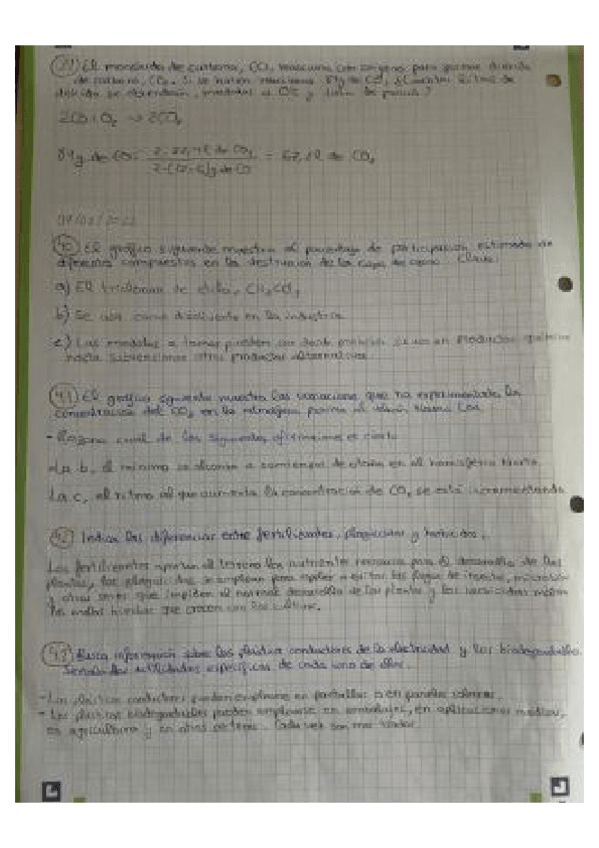 39) El monóxido de carbono, CO, reacciona con oxígeno para formar dióxido
de carbono, CO₂. Si se hacen reaccionar 84g de CO, ¿Cuántos litros de
dióxido se obtendrán, medidos a 0ºC y 1atm de presión?
2CO + O₂ → 2CO₂
84g de CO · 2·22,4 l de CO₂ / 2·(12+16)g de CO = 67,2 l de CO₂
40) El gráfico siguiente muestra el porcentaje de participación estimada de
diferentes compuestos en la destrucción de la capa de ozono.
a) El tricloruro de etilo, CH₃CCl₃
b) Se usa como disolvente en la industria
c) Las medidas a tomar pueden ser desde prohibir su uso en productos químicos
hasta subvencionar otros productos alternativos.
41) El gráfico siguiente muestra las variaciones que ha experimentado la
concentración del CO₂ en la atmósfera
- Razona cuál de las siguientes afirmaciones es cierta
La b, el mínimo se alcanza a comienzos de otoño en el hemisferio norte.
La c, el ritmo al que aumenta la concentración de CO₂ se está incrementando
42 Indica las diferencias entre fertilizantes, plaguicidas y herbicidas.
Los fertilizantes aportan al terreno los nutrientes necesarios para el desarrollo de las
plantas, los plaguicidas se emplean para repeler o evitar las plagas de insectos,
y otros seres que impiden el normal desarrollo de las plantas y los herbicidas matan
las malas hierbas que crecen con los cultivos.
43) Busca información sobre los plásticos conductores de la electricidad y los biodegradables.
Señala las utilidades específicas de cada uno de ellos.
- Los plásticos conductores pueden emplearse en pantallas o en paneles solares.
- Los plásticos biodegradables pueden emplearse en embalajes, en aplicaciones médicas,
en agricultura y en otros sectores. Cada vez son más usados.